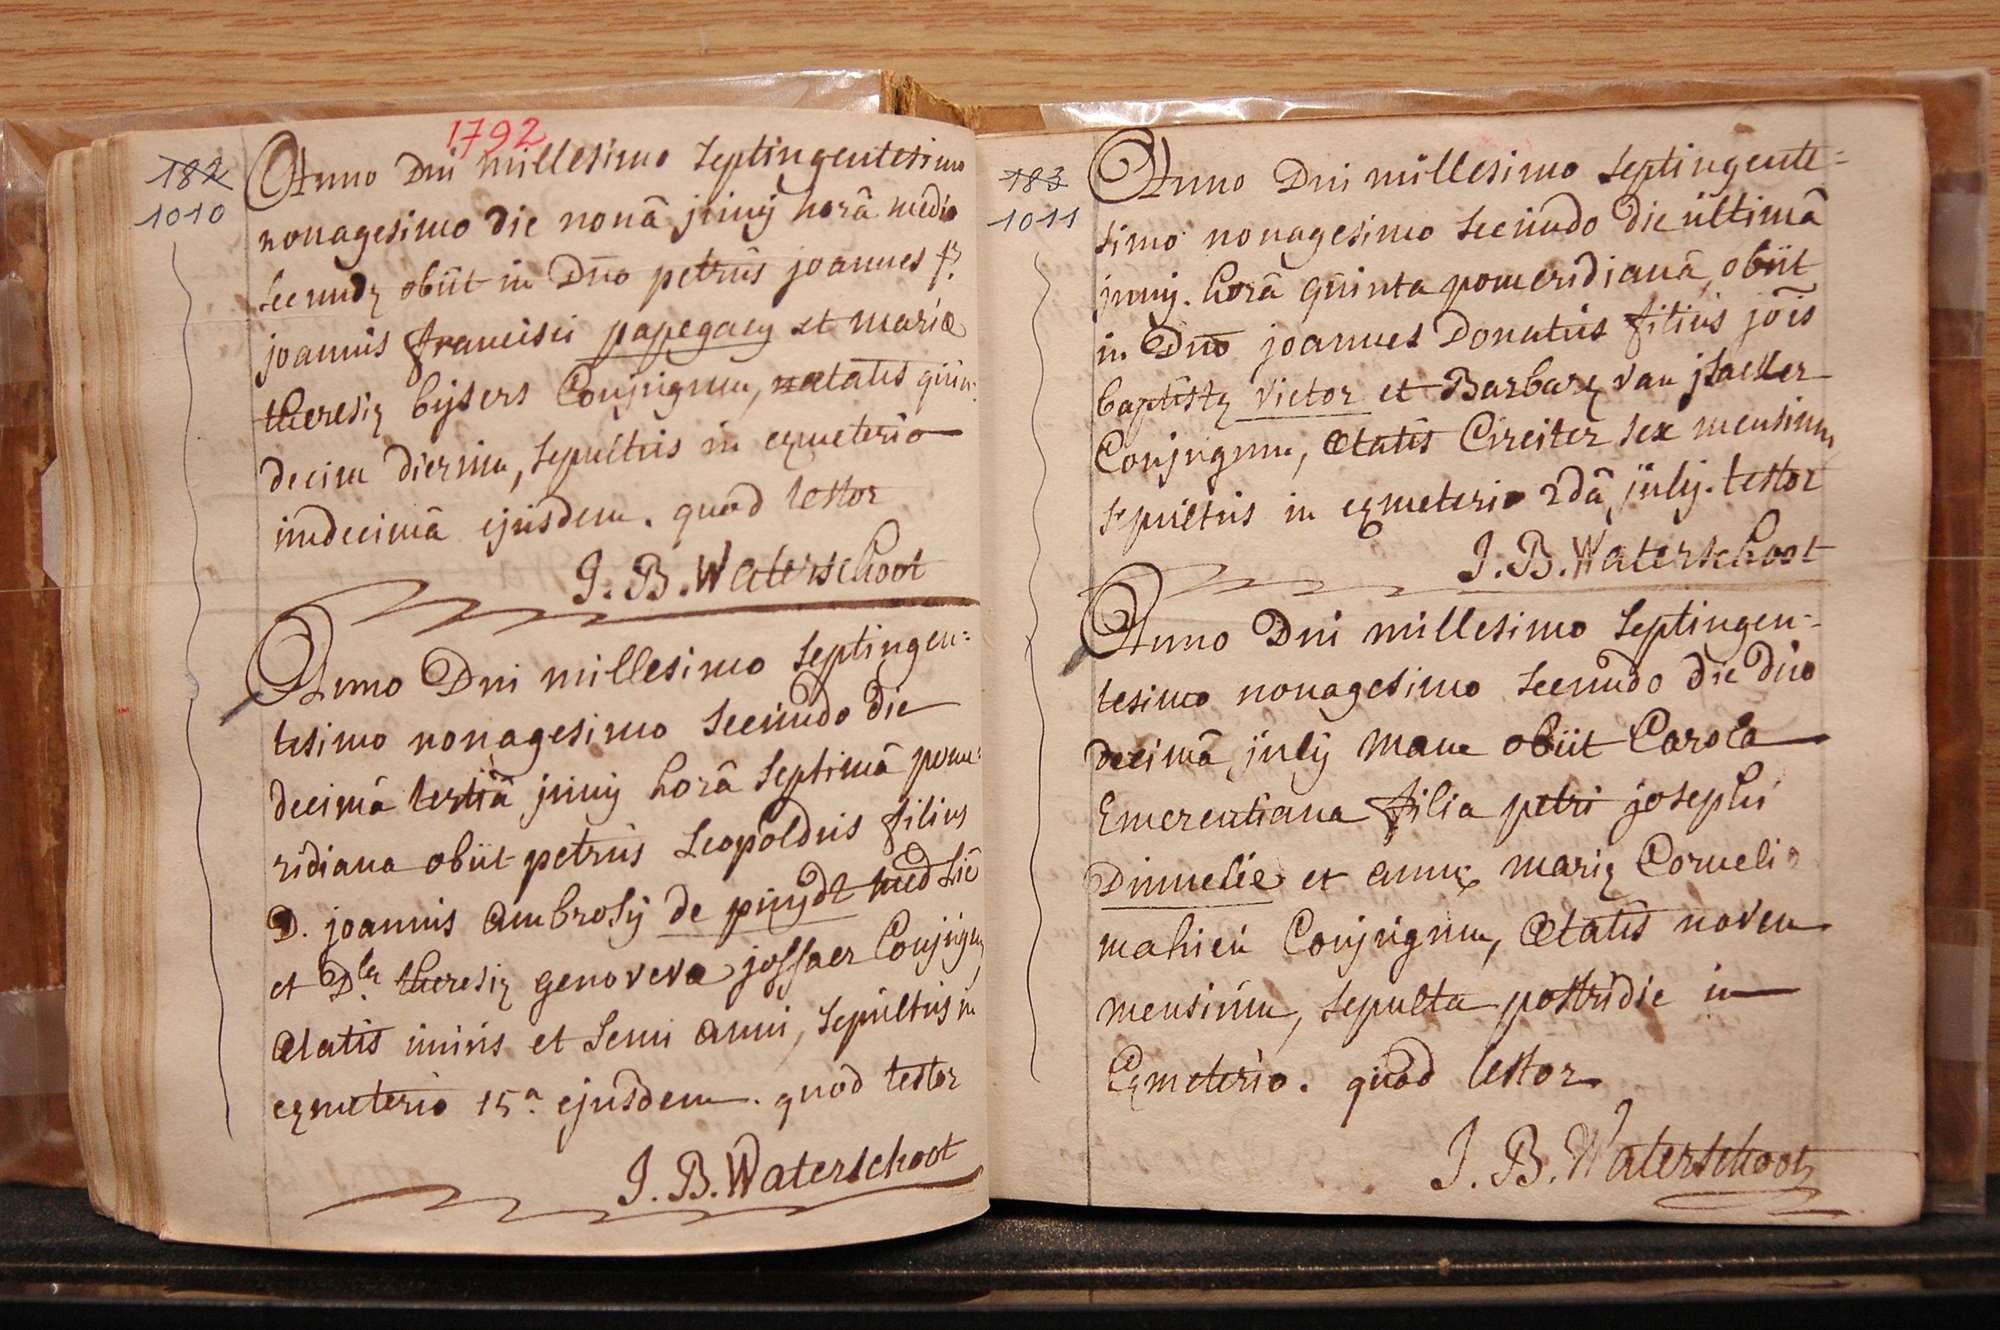 1792
182
1010
Anno Dni millesimo septingentesimo
nonagesimo die nonâ junij horâ media
secundę obiit in Dno petrus joannes fs.
joannis francisci papegaey et mariæ
theresię bijsers Conjugum, ætatis quin:
decim dierum, sepultus in cęmeterio
undecimâ ejusdem. quod testor
J. B. Waterschoot
Anno Dni millesimo septingen=
tesimo nonagesimo secundo die
decimâ tertiâ junij horâ septimâ pome:
ridiana obiit petrus Leopoldus filius
D. joannis ambrosij de puydt med Lic
et D.læ theresię genoveva jossaer Conjugum
ætatis unius et semi anni, sepultus in
cęmeterio 15a ejusdem. quod testor
J. B. Waterschoot
183
1011
Anno Dni millesimo septingente=
simo nonagesimo secundo die ultimâ
junij. horâ quinta pomeridianâ obiit
in Dno joannes Donatus filius jois
baptistę victor et Barbarę van jsacker
Conjugum, ætatis Circiter sex mensium,
sepultus in cęmeterio 2dâ julij. testor
J. B. Waterschoot
Anno Dni millesimo septingen=
tesimo nonagesimo secundo die duo
decimâ julij mane obiit Carola
Emerentiana filia petri josephi
Dumelie et annę marię Corneli
mahieu Conjugum, ætatis novem
mensium, sepulta postridie in
Cęmeterio. quod testor
J. B. Waterschoot